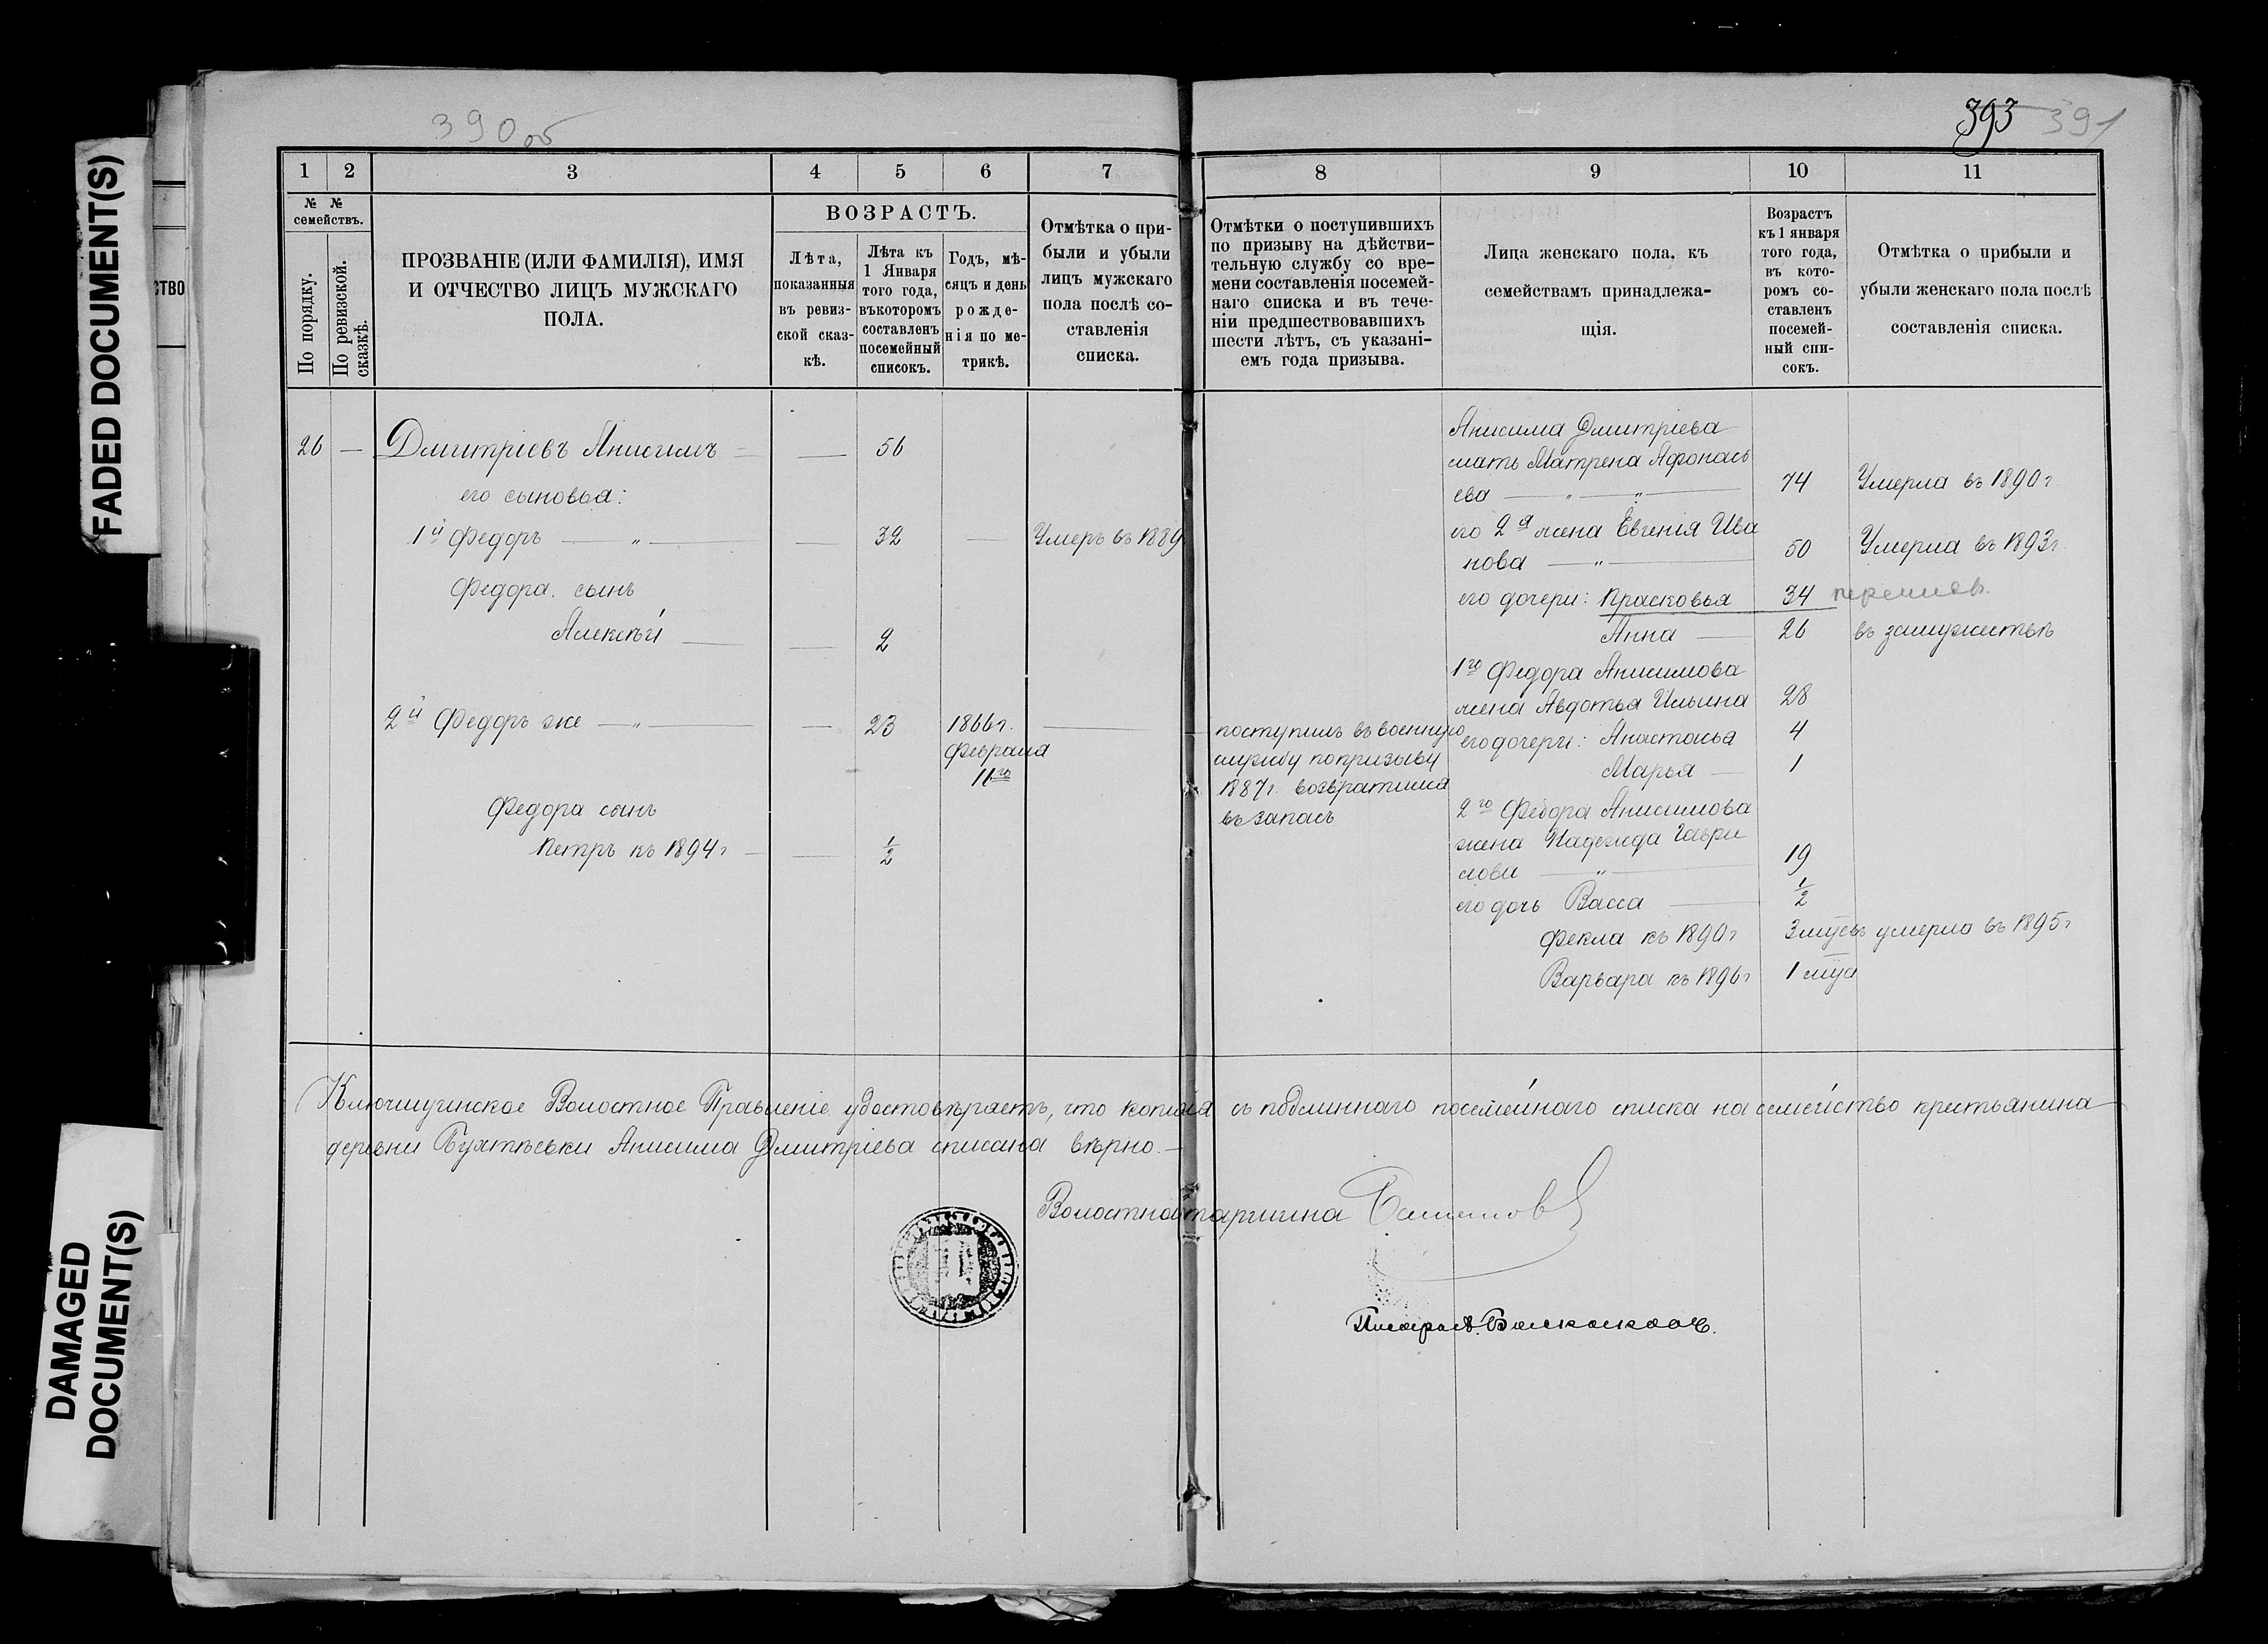 FADED DOCUMENT(S)
DAMAGED
DOCUMENT(S)
СТВО
390 об
393 391
1 2 3 4 5 6 7
№ № семействъ.
По порядку.
По ревизской сказкѣ.
ПРОЗВАНІЕ (ИЛИ ФАМИЛІЯ), ИМЯ
И ОТЧЕСТВО ЛИЦЪ МУЖСКАГО
ПОЛА.
ВОЗРАСТЪ.
Лѣта,
показанныя
въ ревиз-
ской сказ-
кѣ.
Лѣта къ
1 Января
того года,
въкоторомъ
составленъ
посемейный
списокъ.
Годъ, мѣ-
сяцъ и день
рожде-
нія по ме-
трикѣ.
Отмѣтка о при-
были и убыли
лицъ мужскаго
пола послѣ со-
ставленія
списка.
26 — Дмитріевъ Анисимъ — — 56
его сыновья:
1й Федоръ — „ — — 32 — Умеръ въ 1889
Федора сынъ
Алексѣй — — 2
2й Федоръ же — „ — — 23 1866 г. —
Февраля
11го
Федора сынъ
Петръ къ 1894 г — — ½
8 9 10 11
Отмѣтки о поступившихъ
по призыву на дѣйстви-
тельную службу со вре-
мени составленія посемей-
наго списка и въ тече-
ніи предшествовавшихъ
шести лѣтъ, съ указані-
емъ года призыва.
Лица женскаго пола, къ
семействамъ принадлежа-
щія.
Возрастъ
къ 1 января
того года,
въ кото-
ромъ со-
ставленъ
посемей-
ный спи-
сокъ.
Отмѣтка о прибыли и
убыли женскаго пола послѣ
составленія списка.
поступилъ въ военную
службу по призыву
1887 г. возвратился
въ запасъ
Анисима Дмитріева
мать Матрена Афонась
ева — „ — „ — 74 Умерла въ 1890 г.
его 2я жена Евгенія Ива
нова — „ — 50 Умерла въ 1893 г.
его дочери: Прасковья 34
Анна — 26 въ замужествѣ
1го Федора Анисимова
жена Авдотья Ильина 28
его дочери: Анастасья 4
Марья — 1
2го Федора Анисимова
жена Надежда Гаври
лова — „ — 19
его дочь Васса — ½
Фекла къ 1890 г 3 мѣсъ умерла въ 1895 г
Варвара къ 1896 г 1 мѣца
Ключищинское Волостное Правленіе удостовѣряетъ, что копія съ подлиннаго посемейнаго списка на семейство крестьянина
деревни Анисима Дмитріева списана вѣрно. —
Волостной старшина
Писарь